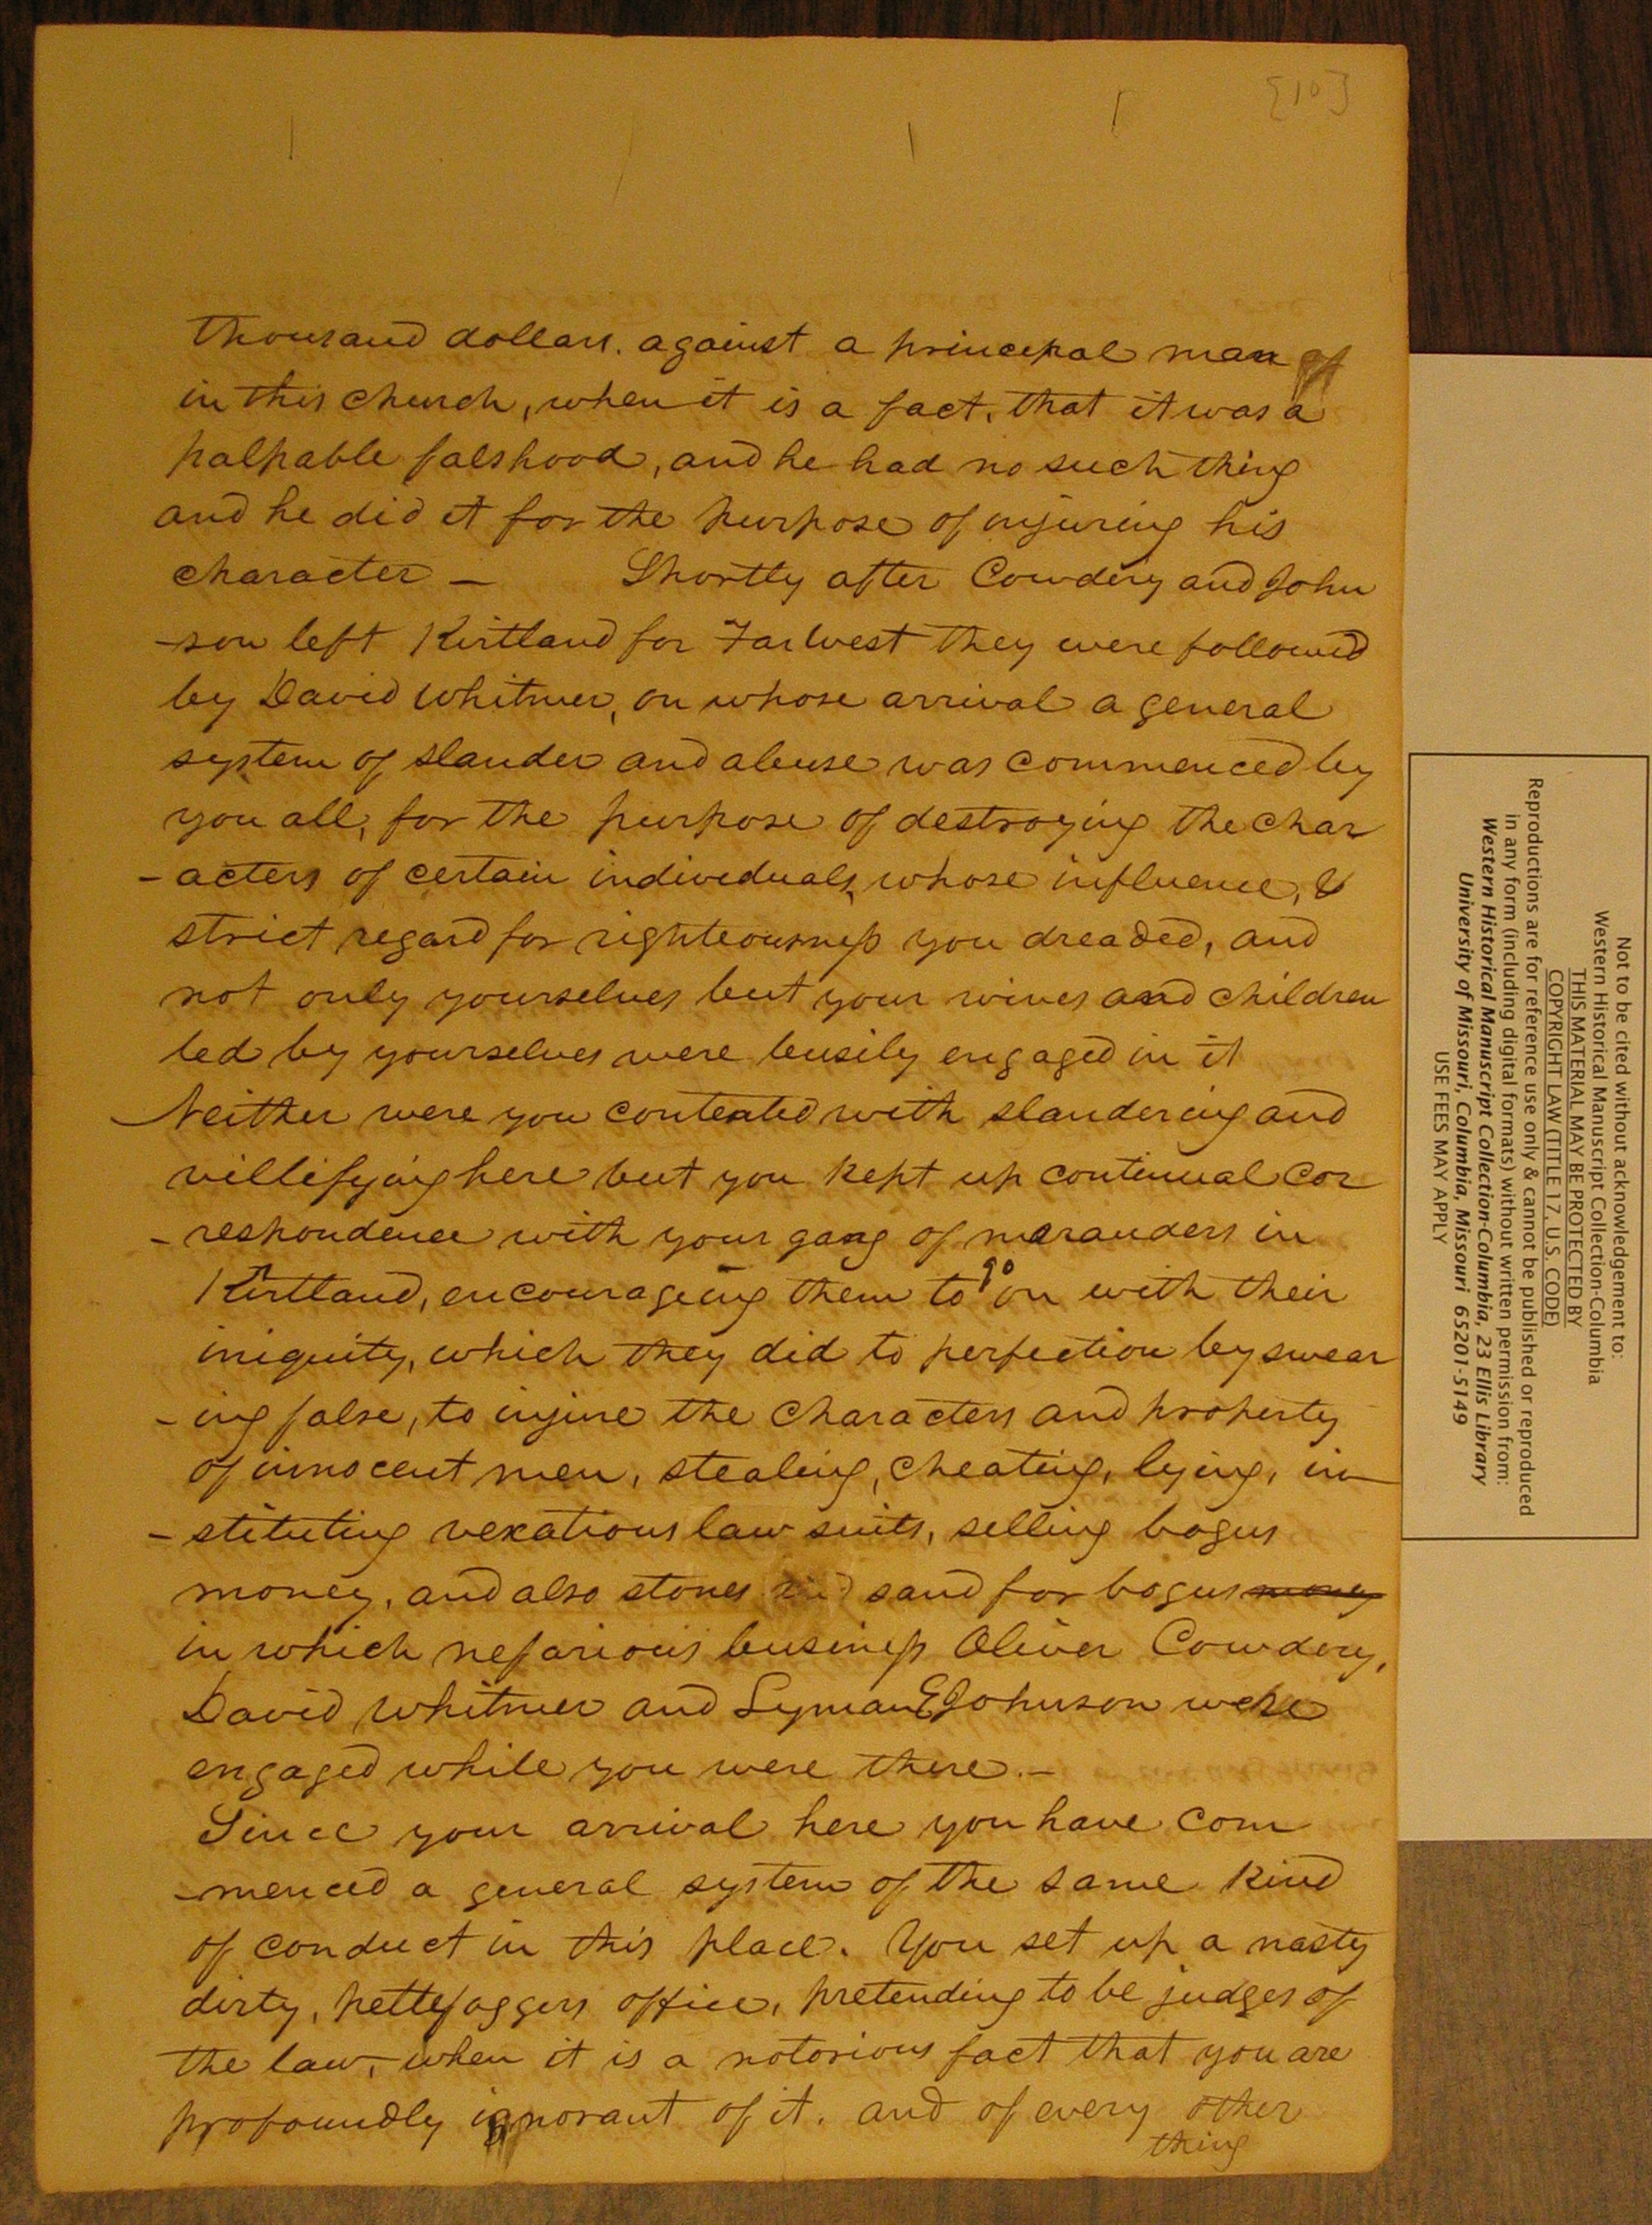 [10]
thousand dollars. against a principal man of
in this church, when it is a fact, that it was a
palpable falshood, and he had no such thing
and he did it for the purpose of injuring his
character — Shortly after Cowdery and John
-son left Kirtland for Farwest they were followed
by David Whitmer, on whose arrival a general
system of slander and abuse was commenced by
you all, for the purpose of destroying the char
- acters of certain individuals, whose influence, &
strict regard for righteousness you dreaded, and
not only yourselves but your wives and children
led by yourselves were busily engaged in it
Neither were you contented with slandering and
villifying here but you kept up continual cor
- respondence with your gang of marauders in
Kirtland, encourageing them to go on with their
iniquity, which they did to perfection by swear
- ing false, to injure the characters and property
of innocent men, stealing, cheating, lying, in
- stituting vexatious law suits, selling bogus
money, and also stones and sand for bogus money
in which nefarious business Oliver Cowdery,
David Whitmer and Lyman E Johnson were
engaged while you were there. —
Since your arrival here you have com
-menced a general system of the same kind
of conduct in this place. You set up a nasty
dirty, pettefoggers office, pretending to be judges of
the law, when it is a notorious fact that you are
profoundly ignorant of it. and of every other
thing
Not to be cited without acknowledgement to:
Western Historical Manuscript Collection-Columbia
THIS MATERIAL MAY BE PROTECTED BY
COPYRIGHT LAW (TITLE 17, U.S. CODE)
Reproductions are for reference use only & cannot be published or reproduced
in any form (including digital formats) without written permission from:
Western Historical Manuscript Collection-Columbia, 23 Ellis Library
University of Missouri, Columbia, Missouri 65201-5149
USE FEES MAY APPLY